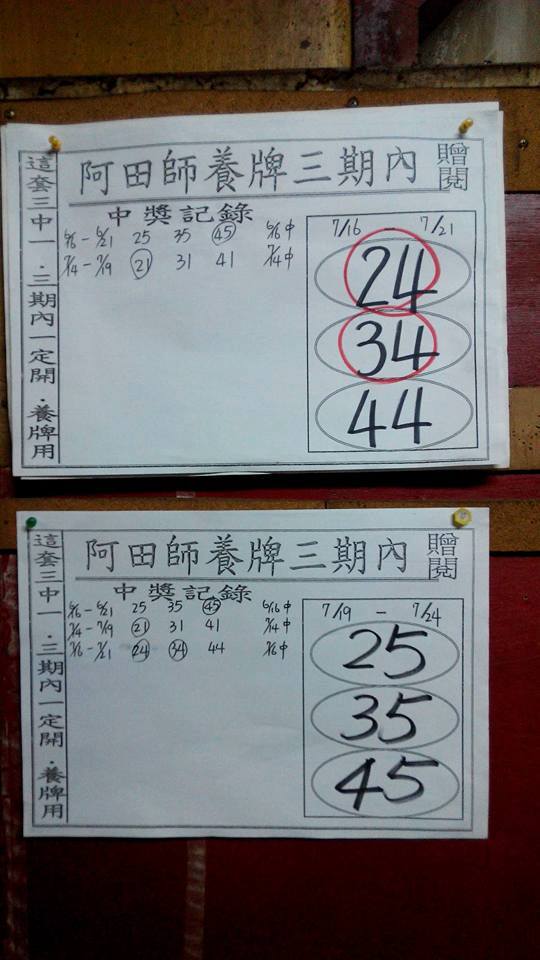 阿田師養牌三期內
贈閱
這套三中一．三期內一定開．養牌用
中獎記錄
6/16 - 6/21 25 35 45 6/16中
7/4 - 7/9 21 31 41 7/4中
7/16 - 7/21
24
34
44
阿田師養牌三期內
贈閱
這套三中一．三期內一定開．養牌用
中獎記錄
6/16 - 6/21 25 35 45 6/16中
7/4 - 7/9 21 31 41 7/4中
7/16 - 7/21 24 34 44 7/16中
7/19 - 7/24
25
35
45